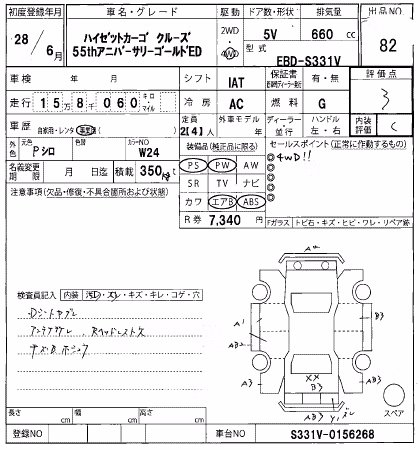 初度登録年月 車名・グレード 駆動 ドア数・形状 排気量 出品NO
28年 6月 ハイゼットカーゴ クルーズ 55thアニバーサリーゴールドED 2WD・4WD 5V 660cc 82
型式 EBD-S331V
車検 年 月 シフト IAT 保証書 有・無 評価点 3
走行 15万8千060 キロ マイル 冷房 AC 燃料 G
車歴 自家用・レンタ・事業用 定員 2[4]人 外車モデル 年 ディーラー・並行 ハンドル 左・右 内装評価 C
外色 元色 Pシロ 色替 カラーNO W24 装備品(純正品に限る) セールスポイント(正常に作動するもの)
名義変更期限 月 日迄 積載 350kg t PS PW AW ◎4WD!!
注意事項(欠品・修復・不具合箇所および状態) SR TV ナビ ◎
カワ エアB ABS ◎
R券 7,340円 ◎
Fガラス トビ石・キズ・ヒビ・ワレ・リペア跡
検査員記入 内装 汚レ・スレ・キズ・キレ・コゲ・穴
A1 B3
AB2
A3 XX B3 A3
AB3 AB3
スペア
長さ cm 幅 cm 高さ cm
登録NO 車台NO S331V-0156268